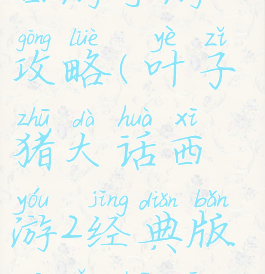 gōng lüè yè zǐ
攻略(叶子
zhū dà huà xī
猪大话西
yóu jīng diǎn bǎn
游2经典版